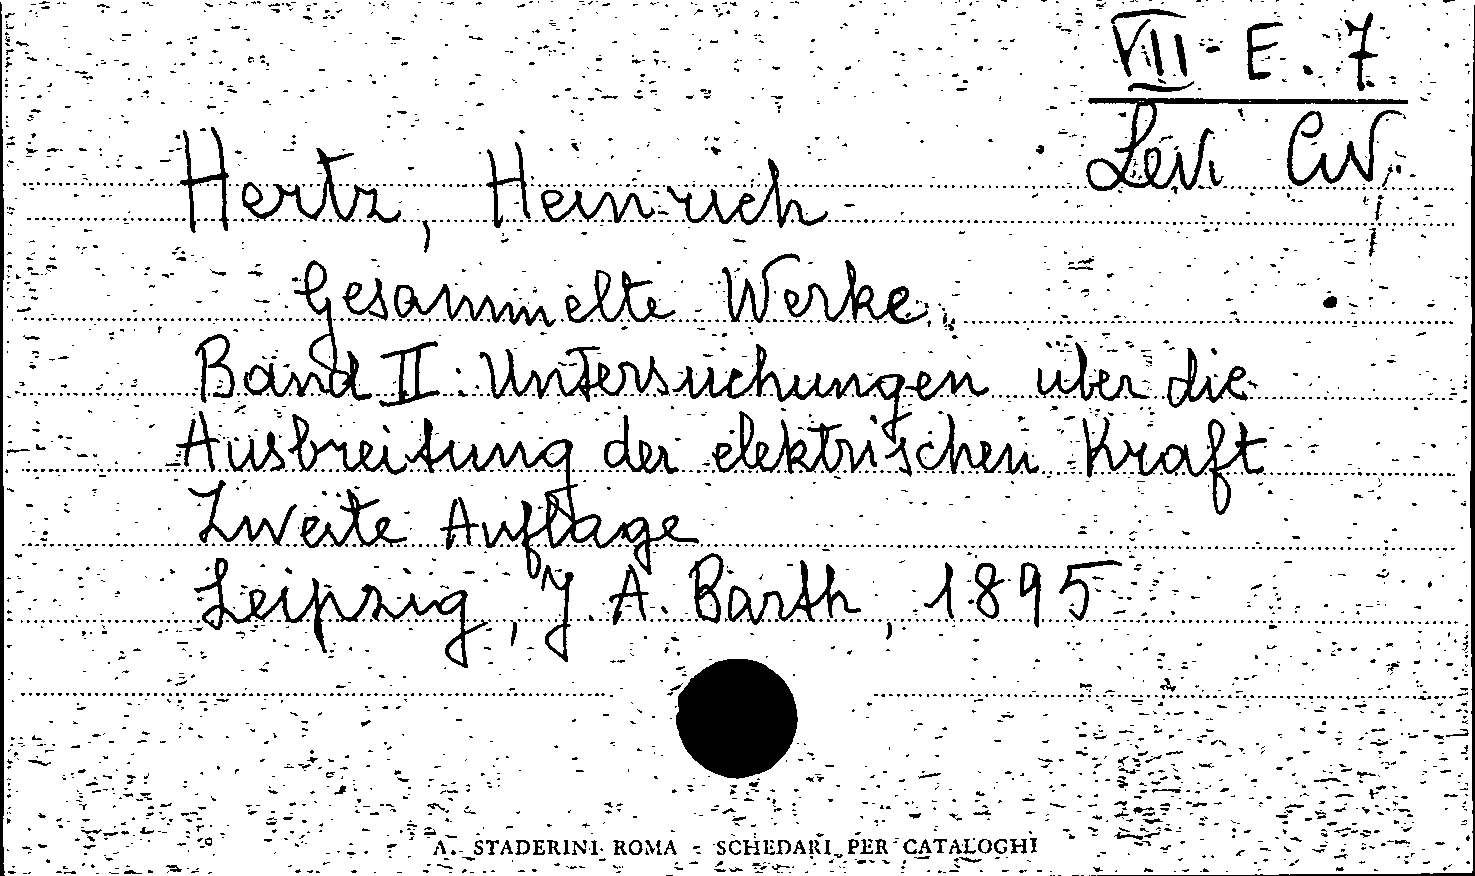 VII - E. 7
Levi Civ.
Hertz, Heinrich
Gesammelte Werke.
Band II: Untersuchungen über die
Ausbreitung der elektrischen Kraft
Zweite Auflage
Leipzig, J. A. Barth, 1895
A. STADERINI ROMA - SCHEDARI PER CATALOGHI